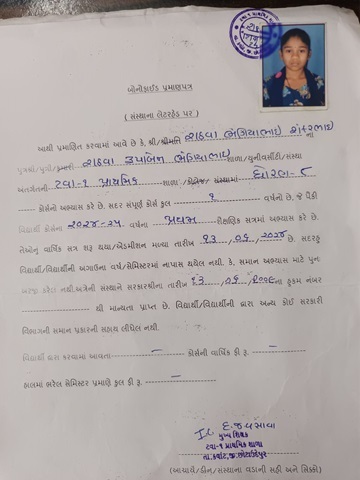 બોનીફાઈડ પ્રમાણપત્ર
( સંસ્થાના લેટરહેડ પર )
આથી પ્રમાણિત કરવામાં આવે છે કે, શ્રી/શ્રીમતિ રાઠવા ભંગિયાભાઇ શંકરભાઇ ના
પુત્રશ્રી/પુત્રી/કુમારી રાઠવા રૂપાબેન ભંગિયાભાઇ શાળા/યુનીવર્સીટી/સંસ્થા
અંતર્ગતની ટવા-૧ પ્રાથમિક શાળા /કોલેજ/ સંસ્થામાં ધોરણ-૮
કોર્સનો અભ્યાસ કરે છે. સદર સંપૂર્ણ કોર્સ કુલ ૧ વર્ષનો છે, જે પૈકી
વિદ્યાર્થી કોર્સના ૨૦૨૪-૨૫ વર્ષના પ્રથમ શૈક્ષણિક સત્રમાં અભ્યાસ કરે છે.
તેઓનુ વાર્ષિક સત્ર શરૂ થયા/એડમીશન મળ્યા તારીખ ૧૩/૦૬/૨૦૨૪ છે. સદરહુ
વિદ્યાર્થી/વિદ્યાર્થીની અગાઉના વર્ષ/સેમિસ્ટરમાં નાપાસ થયેલ નથી. કે, સમાન અભ્યાસ માટે પુનઃ
કરેલ નથી.અત્રેની સંસ્થાને સરકારશ્રીના તારીખ ના હુકમ નંબર
થી માન્યતા પ્રાપ્ત છે. વિદ્યાર્થી/વિદ્યાર્થીની દ્વારા અન્ય કોઈ સરકારી
વિભાગની સમાન પ્રકારની સહાય લીધેલ નથી.
વિદ્યાર્થી દ્વારા કરવામાં આવતા - કોર્સની વાર્ષિક ફી રૂ. -
હાલમાં ભરેલ સેમિસ્ટર પ્રમાણે કુલ ફી રૂ. -
મુખ્ય શિક્ષક
ટવા-૧ પ્રાથમિક શાળા
તા.કવાંટ,જી.છોટાઉદેપુર
(આચાર્ય/ડીન/સંસ્થાના વડાની સહી અને સિક્કો)